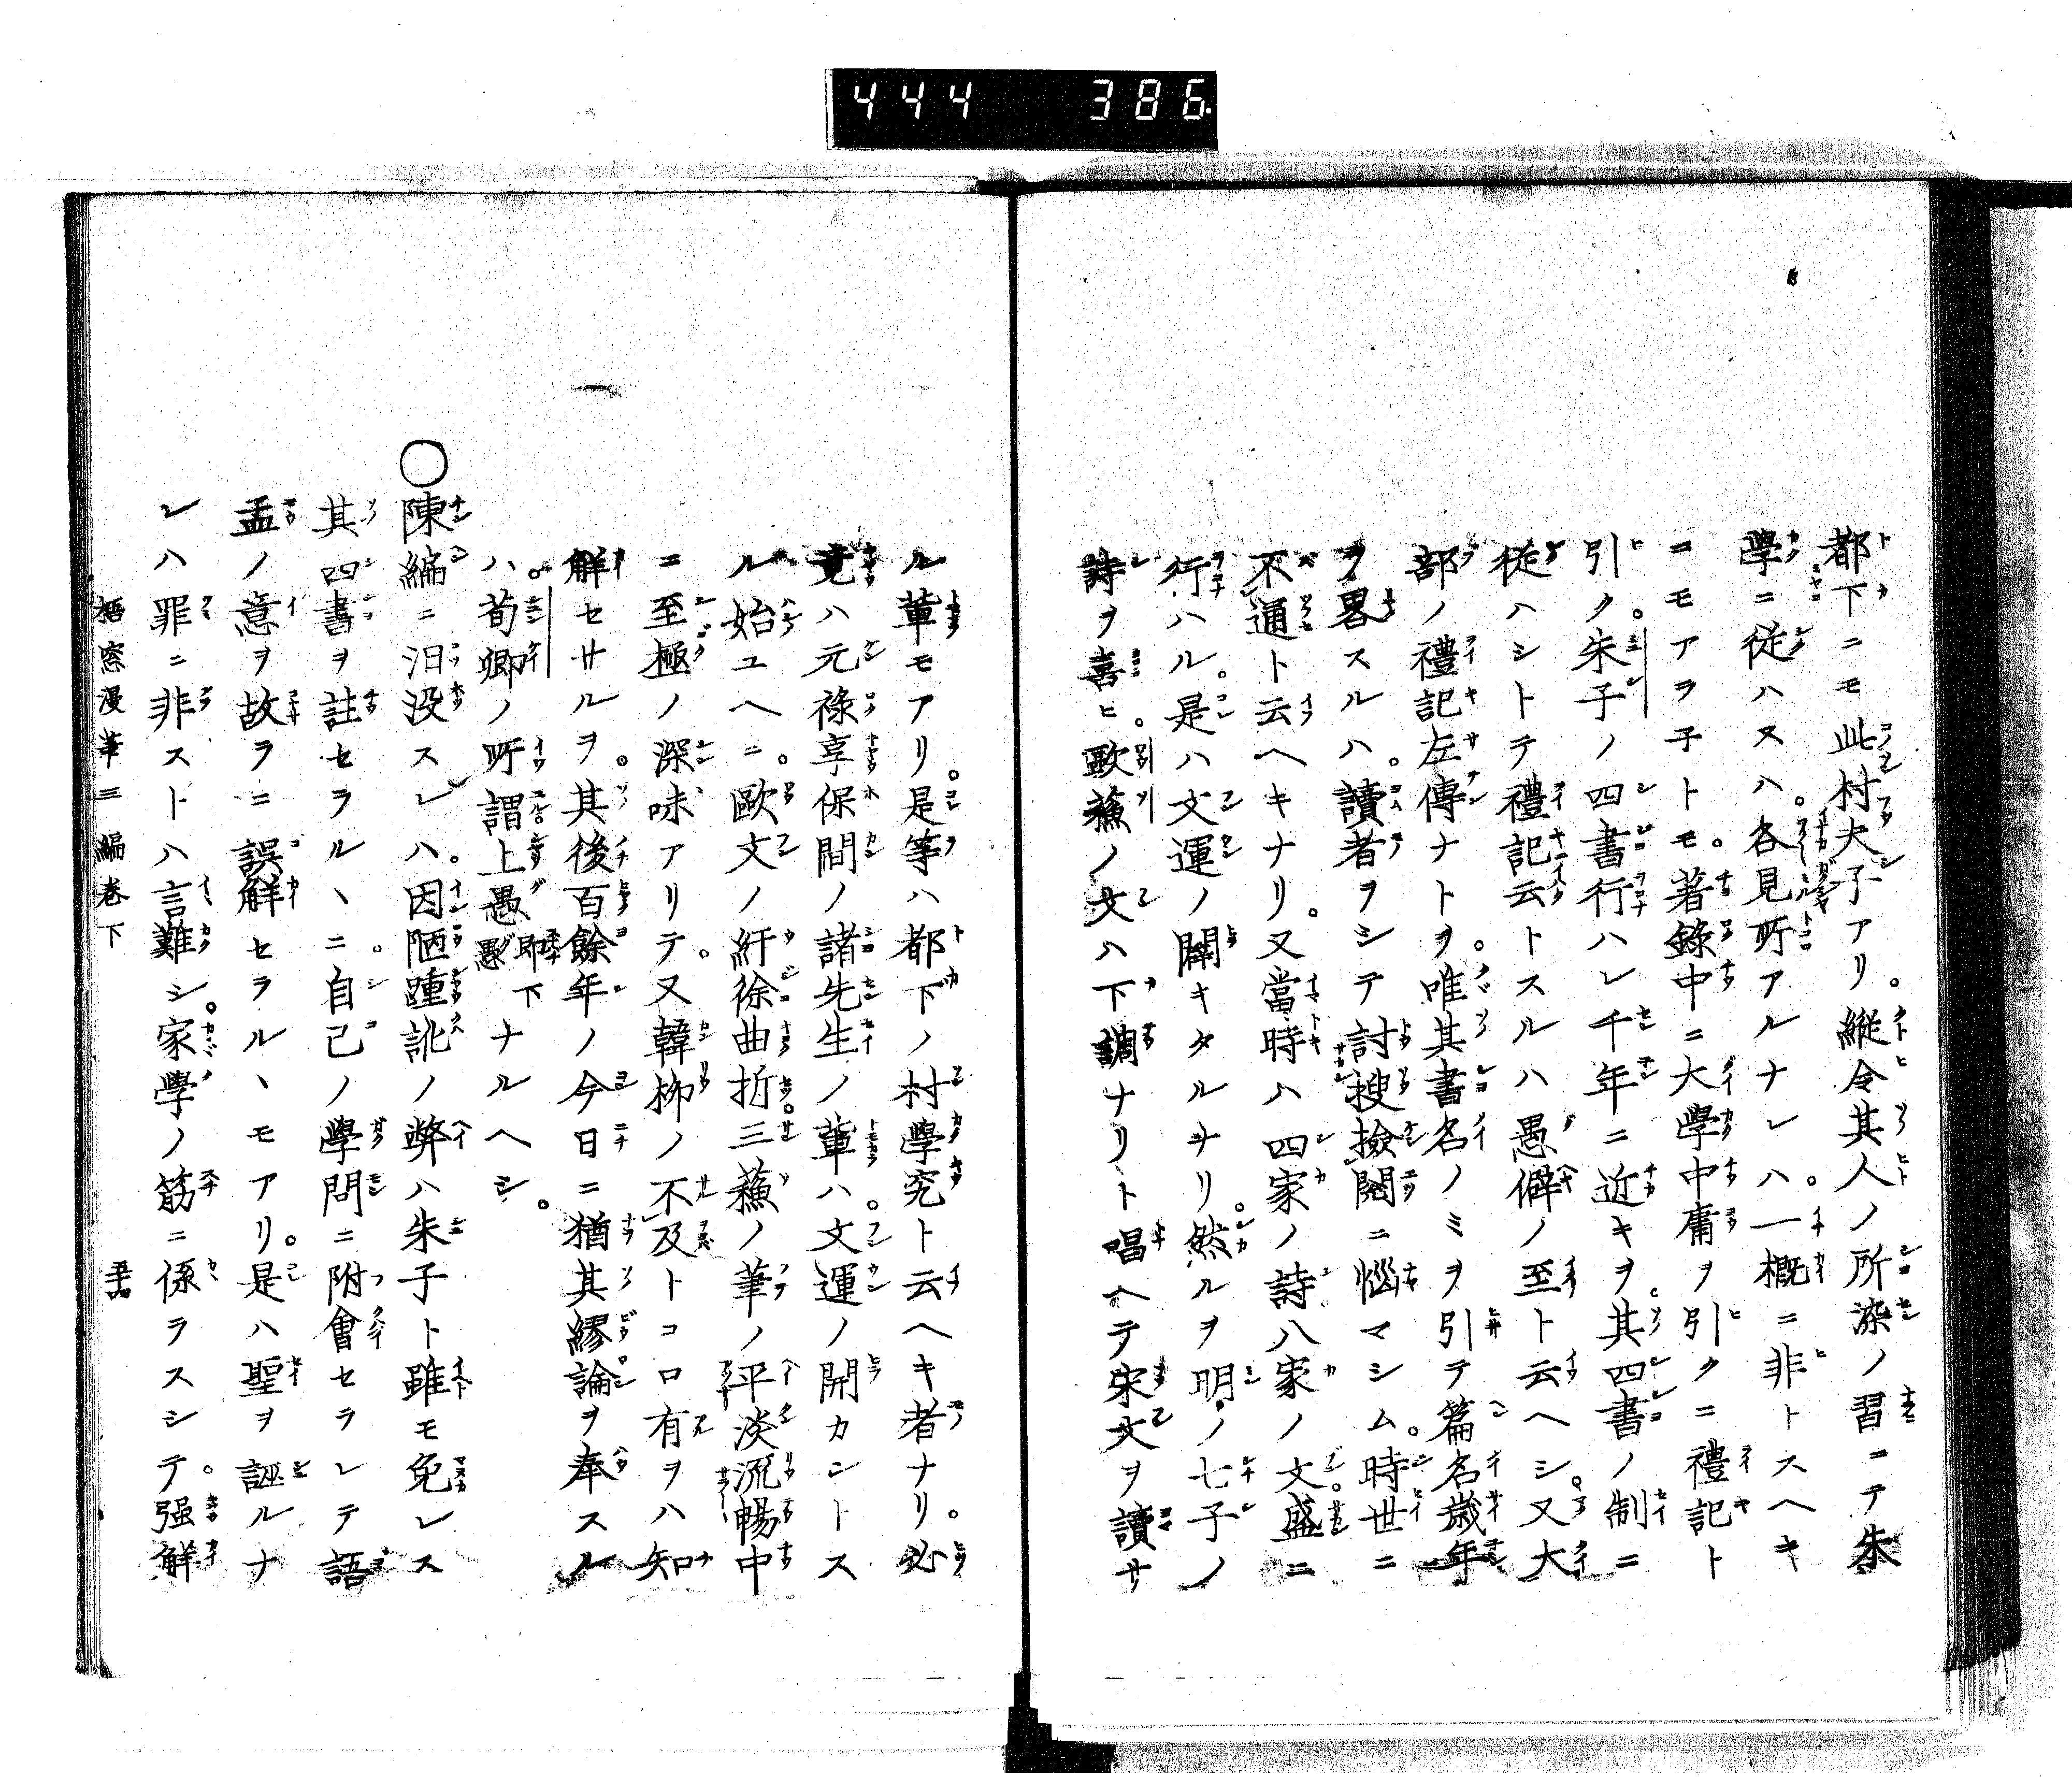 444 386
都下ニモ此村夫子アリ。縦令其人ノ所染ノ習ニテ朱
學ニ從ハスハ。各見所アルナレハ。一概ニ非トスヘキ
ニモアラ子トモ。著錄中ニ大學中庸ヲ引クニ禮記ト
引ク。朱子ノ四書行ハレ千年ニ近キヲ。其四書ノ制ニ
從ハシトテ禮記云トスルハ愚僻ノ至ト云ヘシ。又大
部ノ禮記左傳ナトヲ。唯其書名ノミヲ引テ篇名歲年
ヲ畧スルハ。讀者ヲシテ討搜撿閱ニ惱マシム。時世ニ
不通ト云ヘキナリ。又當時ハ四家ノ詩八家ノ文。盛ニ
行ハル。是ハ文運ノ闢キタルヲナリ。然ルヲ明ノ七子ノ
詩ヲ喜ヒ。歐蘓ノ文ハ下調ナリト唱ヘテ宋文ヲ讀サ
ル輩モアリ。是等ハ都下ノ村學究ト云ヘキ者ナリ。必
竟ハ元祿享保間ノ諸先生ノ輩ハ。文運ノ開カントス
ル始ユヘニ。歐文ノ紆徐曲折。三蘓ノ筆ノ平淡流暢中
ニ至極ノ深味アリテ。又韓栁ノ不及トコロ有ヲハ知
解セサルヲ。其後百餘年ノ今日ニ猶其繆論ヲ奉スル
ハ。荀卿ノ所謂上愚 即下愚 ナルヘシ。
〇陳編ニ汨没スレハ。因陋踵訛ノ弊ハ朱子ト雖モ免レス
其四書ヲ註セラルヽニ。自己ノ學問ニ附會セラレテ語
孟ノ意ヲ故ラニ誤解セラルヽモアリ。是ハ聖ヲ誣ルナ
レハ罪ニ非ストハ言難シ。家學ノ筋ニ係ラスシテ。强解
梧窓漫筆三編卷下